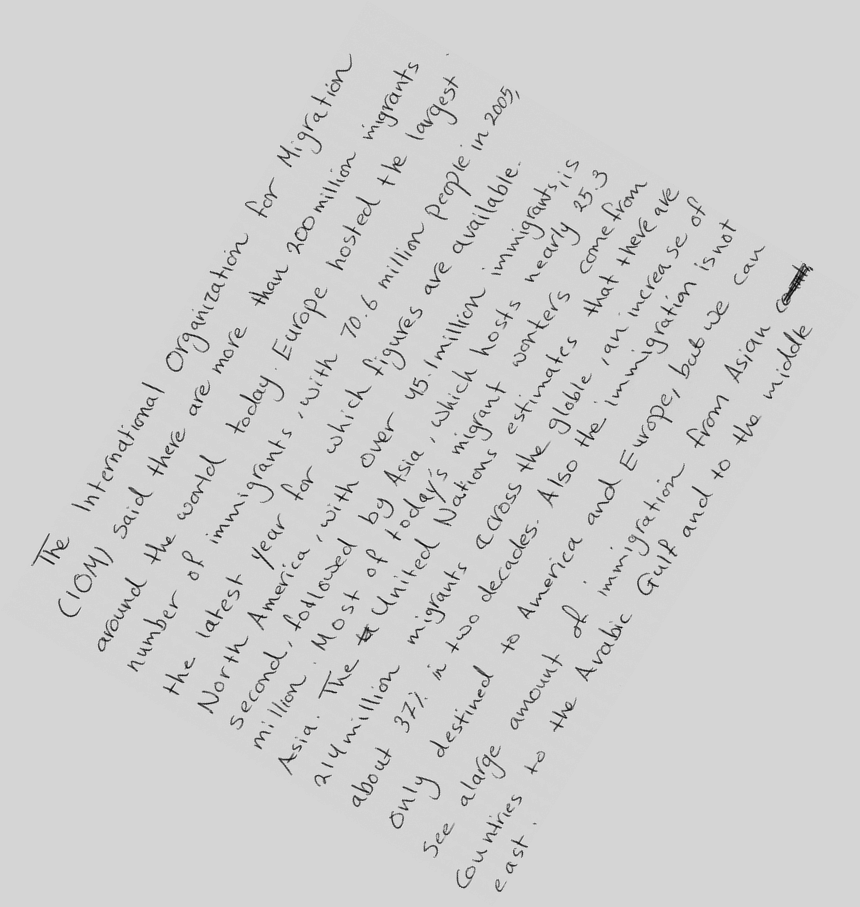 The International Organization for Migration
(IOM) said there are more than 200 million migrants
around the world today. Europe hosted the largest
number of immigrants, with 70.6 million people in 2005,
the latest year for which figures are available.
North America, with over 45.1 million immigrants, is
second, followed by Asia, which hosts nearly 25.3
million. Most of today's migrant wonters come from
Asia. The United Nations estimates that there are
214 million migrants across the globle, an increase of
about 37% in two decades. Also the immigration is not
only destined to America and Europe, but we can
see a large amount of immigration from Asian
Countries to the Arabic Gulf and to the middle
east.